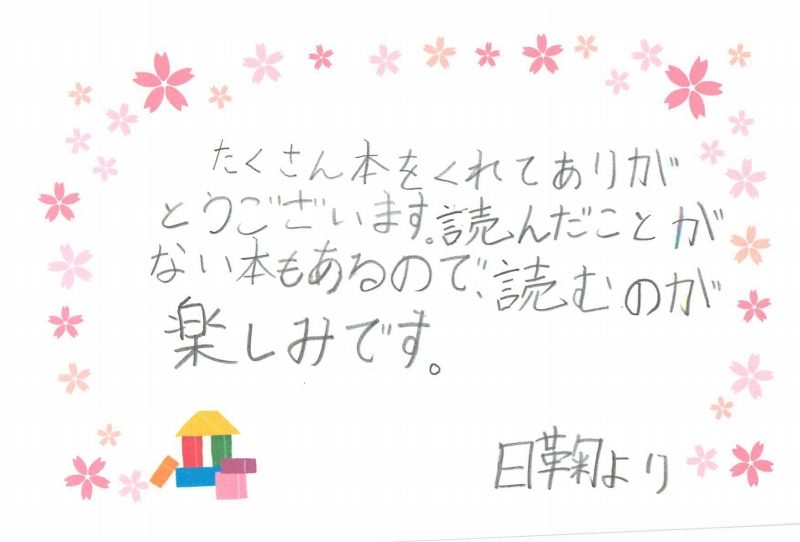 たくさん本をくれてありが
とうございます。読んだことが
ない本もあるので、読むのが
楽しみです。
日鞠より